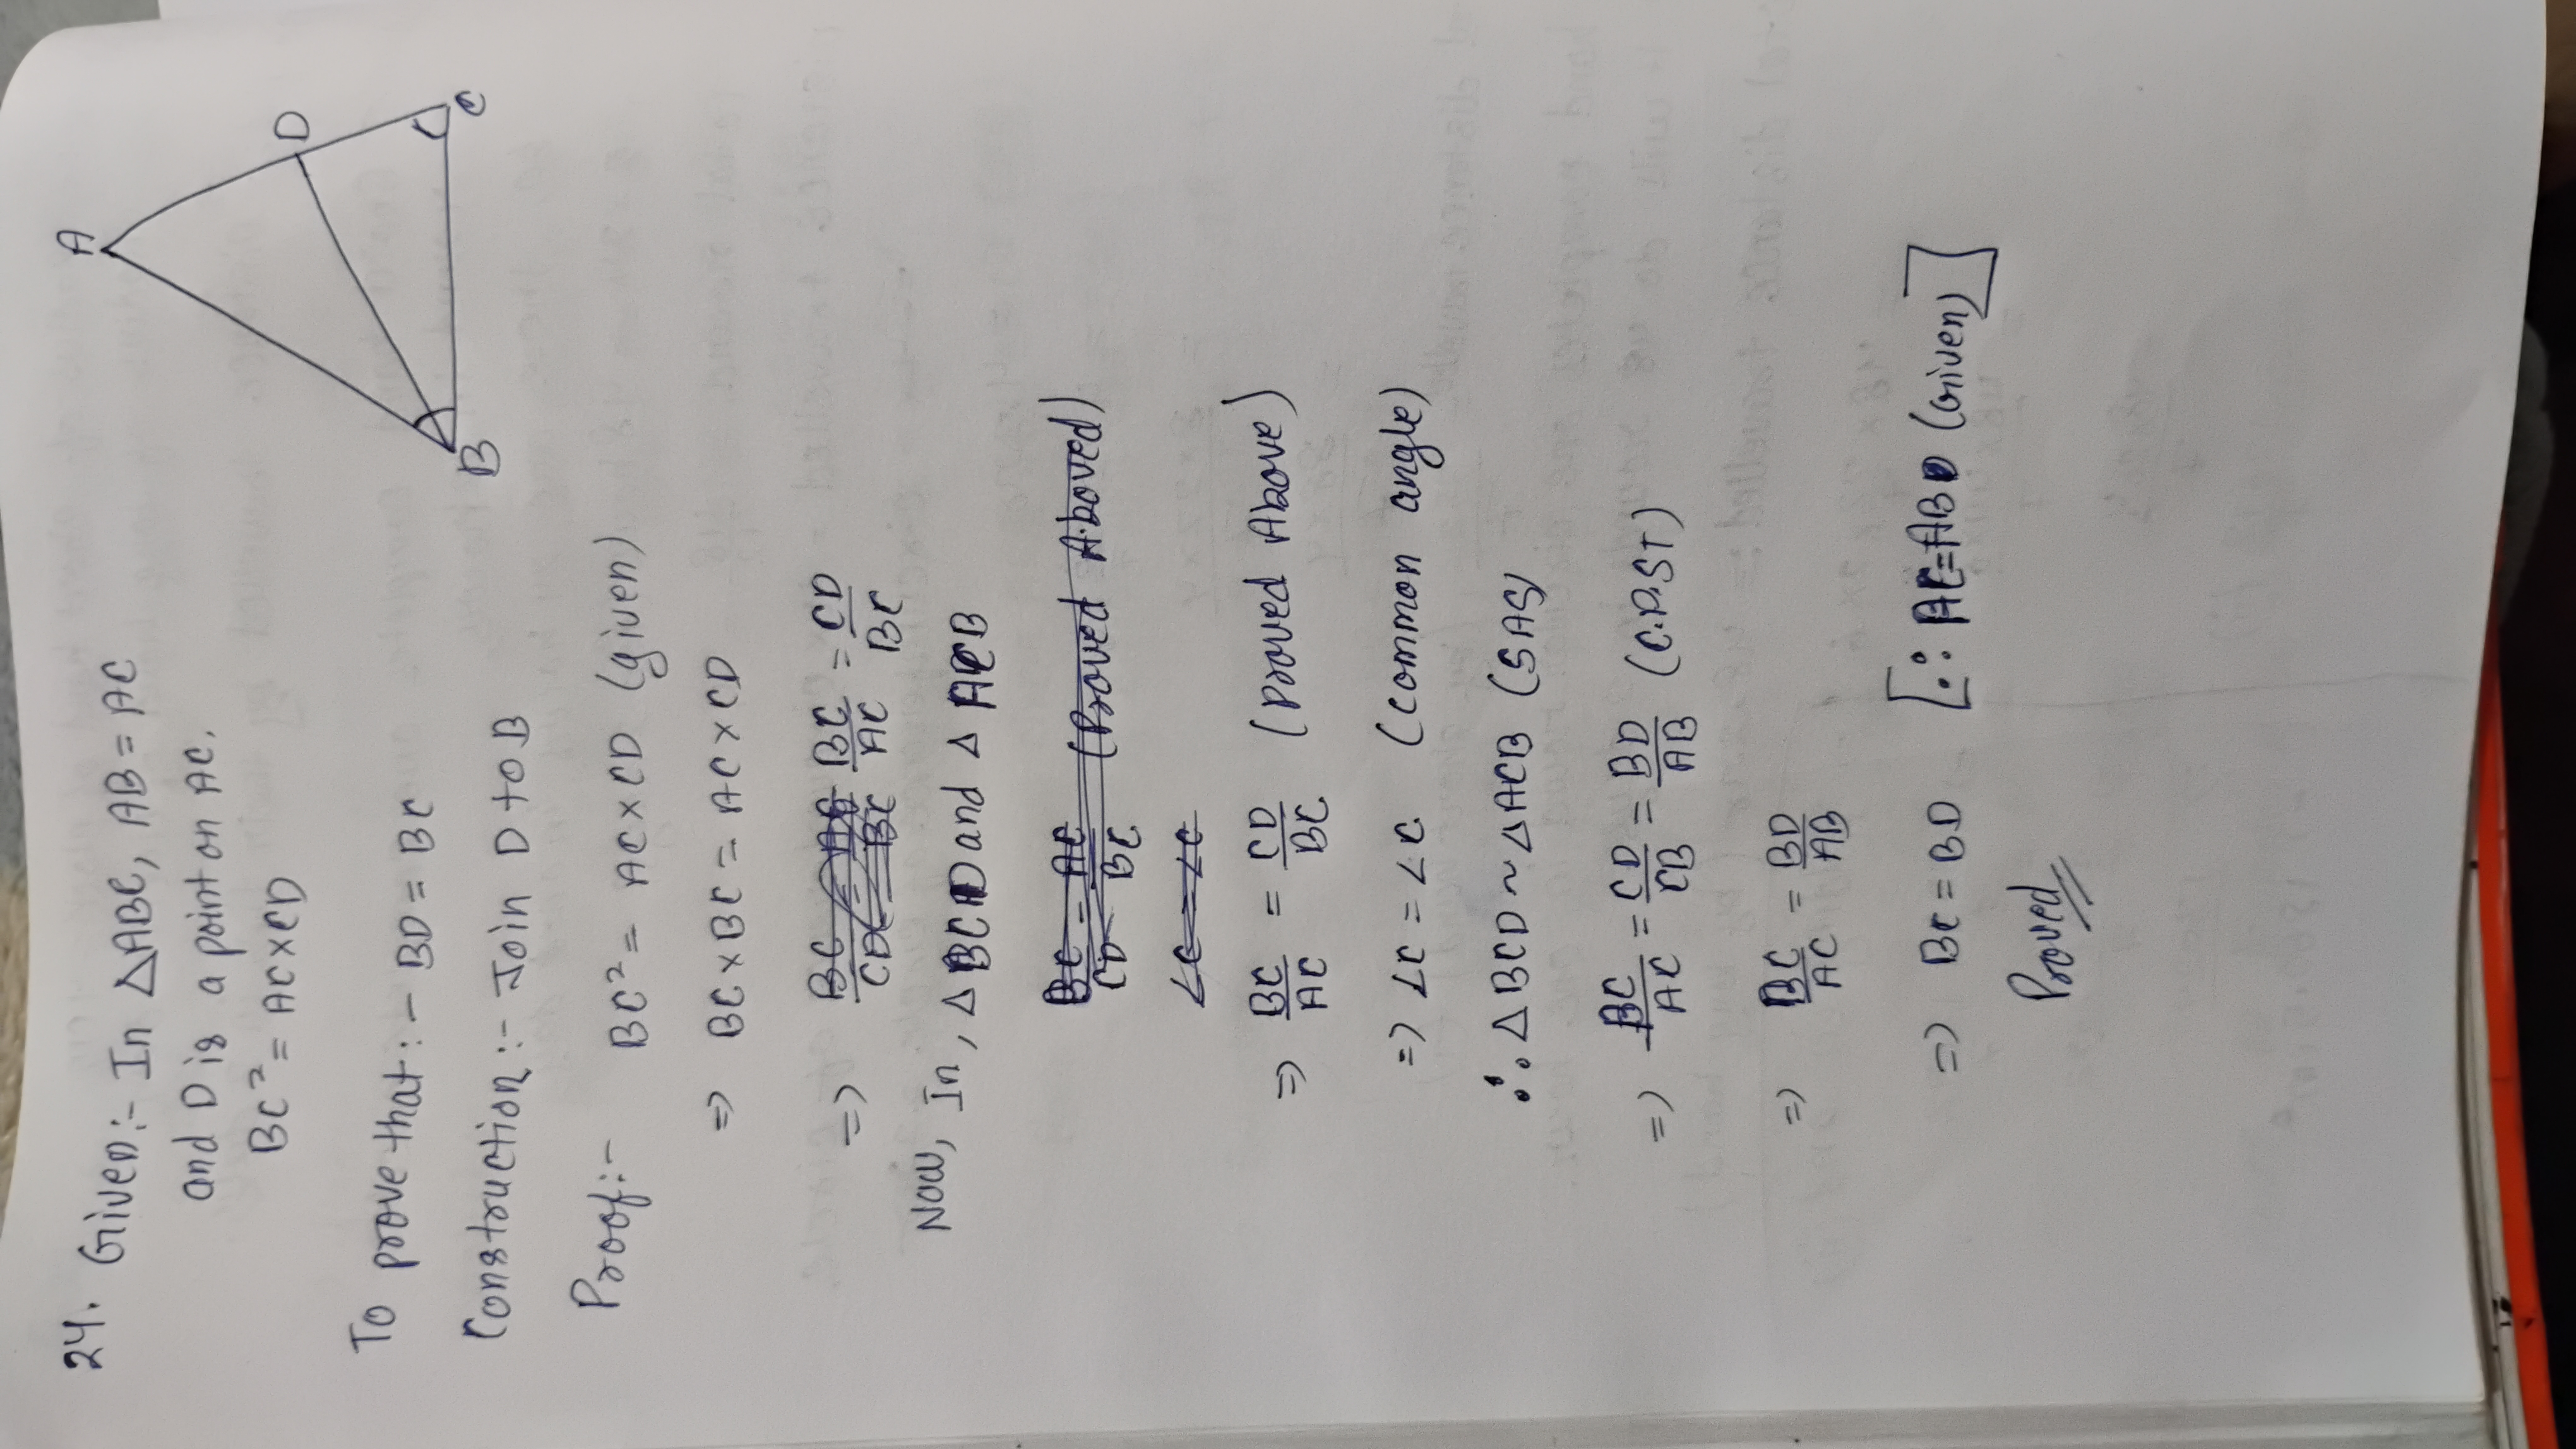 24. Given:- In ΔABC, AB = AC
and D is a point on AC.
BC² = AC×CD
A
D
C
B
To prove that:- BD = BC
Construction:- Join D to B
Proof:- BC² = AC×CD (given)
⇒ BC×BC = AC×CD
⇒ BC/AC = CD/BC
Now, In, ΔBCD and ΔACB
BC/CD = AC/BC (Proved Aboved)
∠C = ∠C
⇒ BC/AC = CD/BC (Proved Above)
⇒ ∠C = ∠C (common angle)
∴ ΔBCD ~ ΔACB (SAS)
⇒ BC/AC = CD/CB = BD/AB (C.P.ST)
⇒ BC/AC = BD/AB
⇒ BC = BD [∵ AC=AB (Given)]
Proved